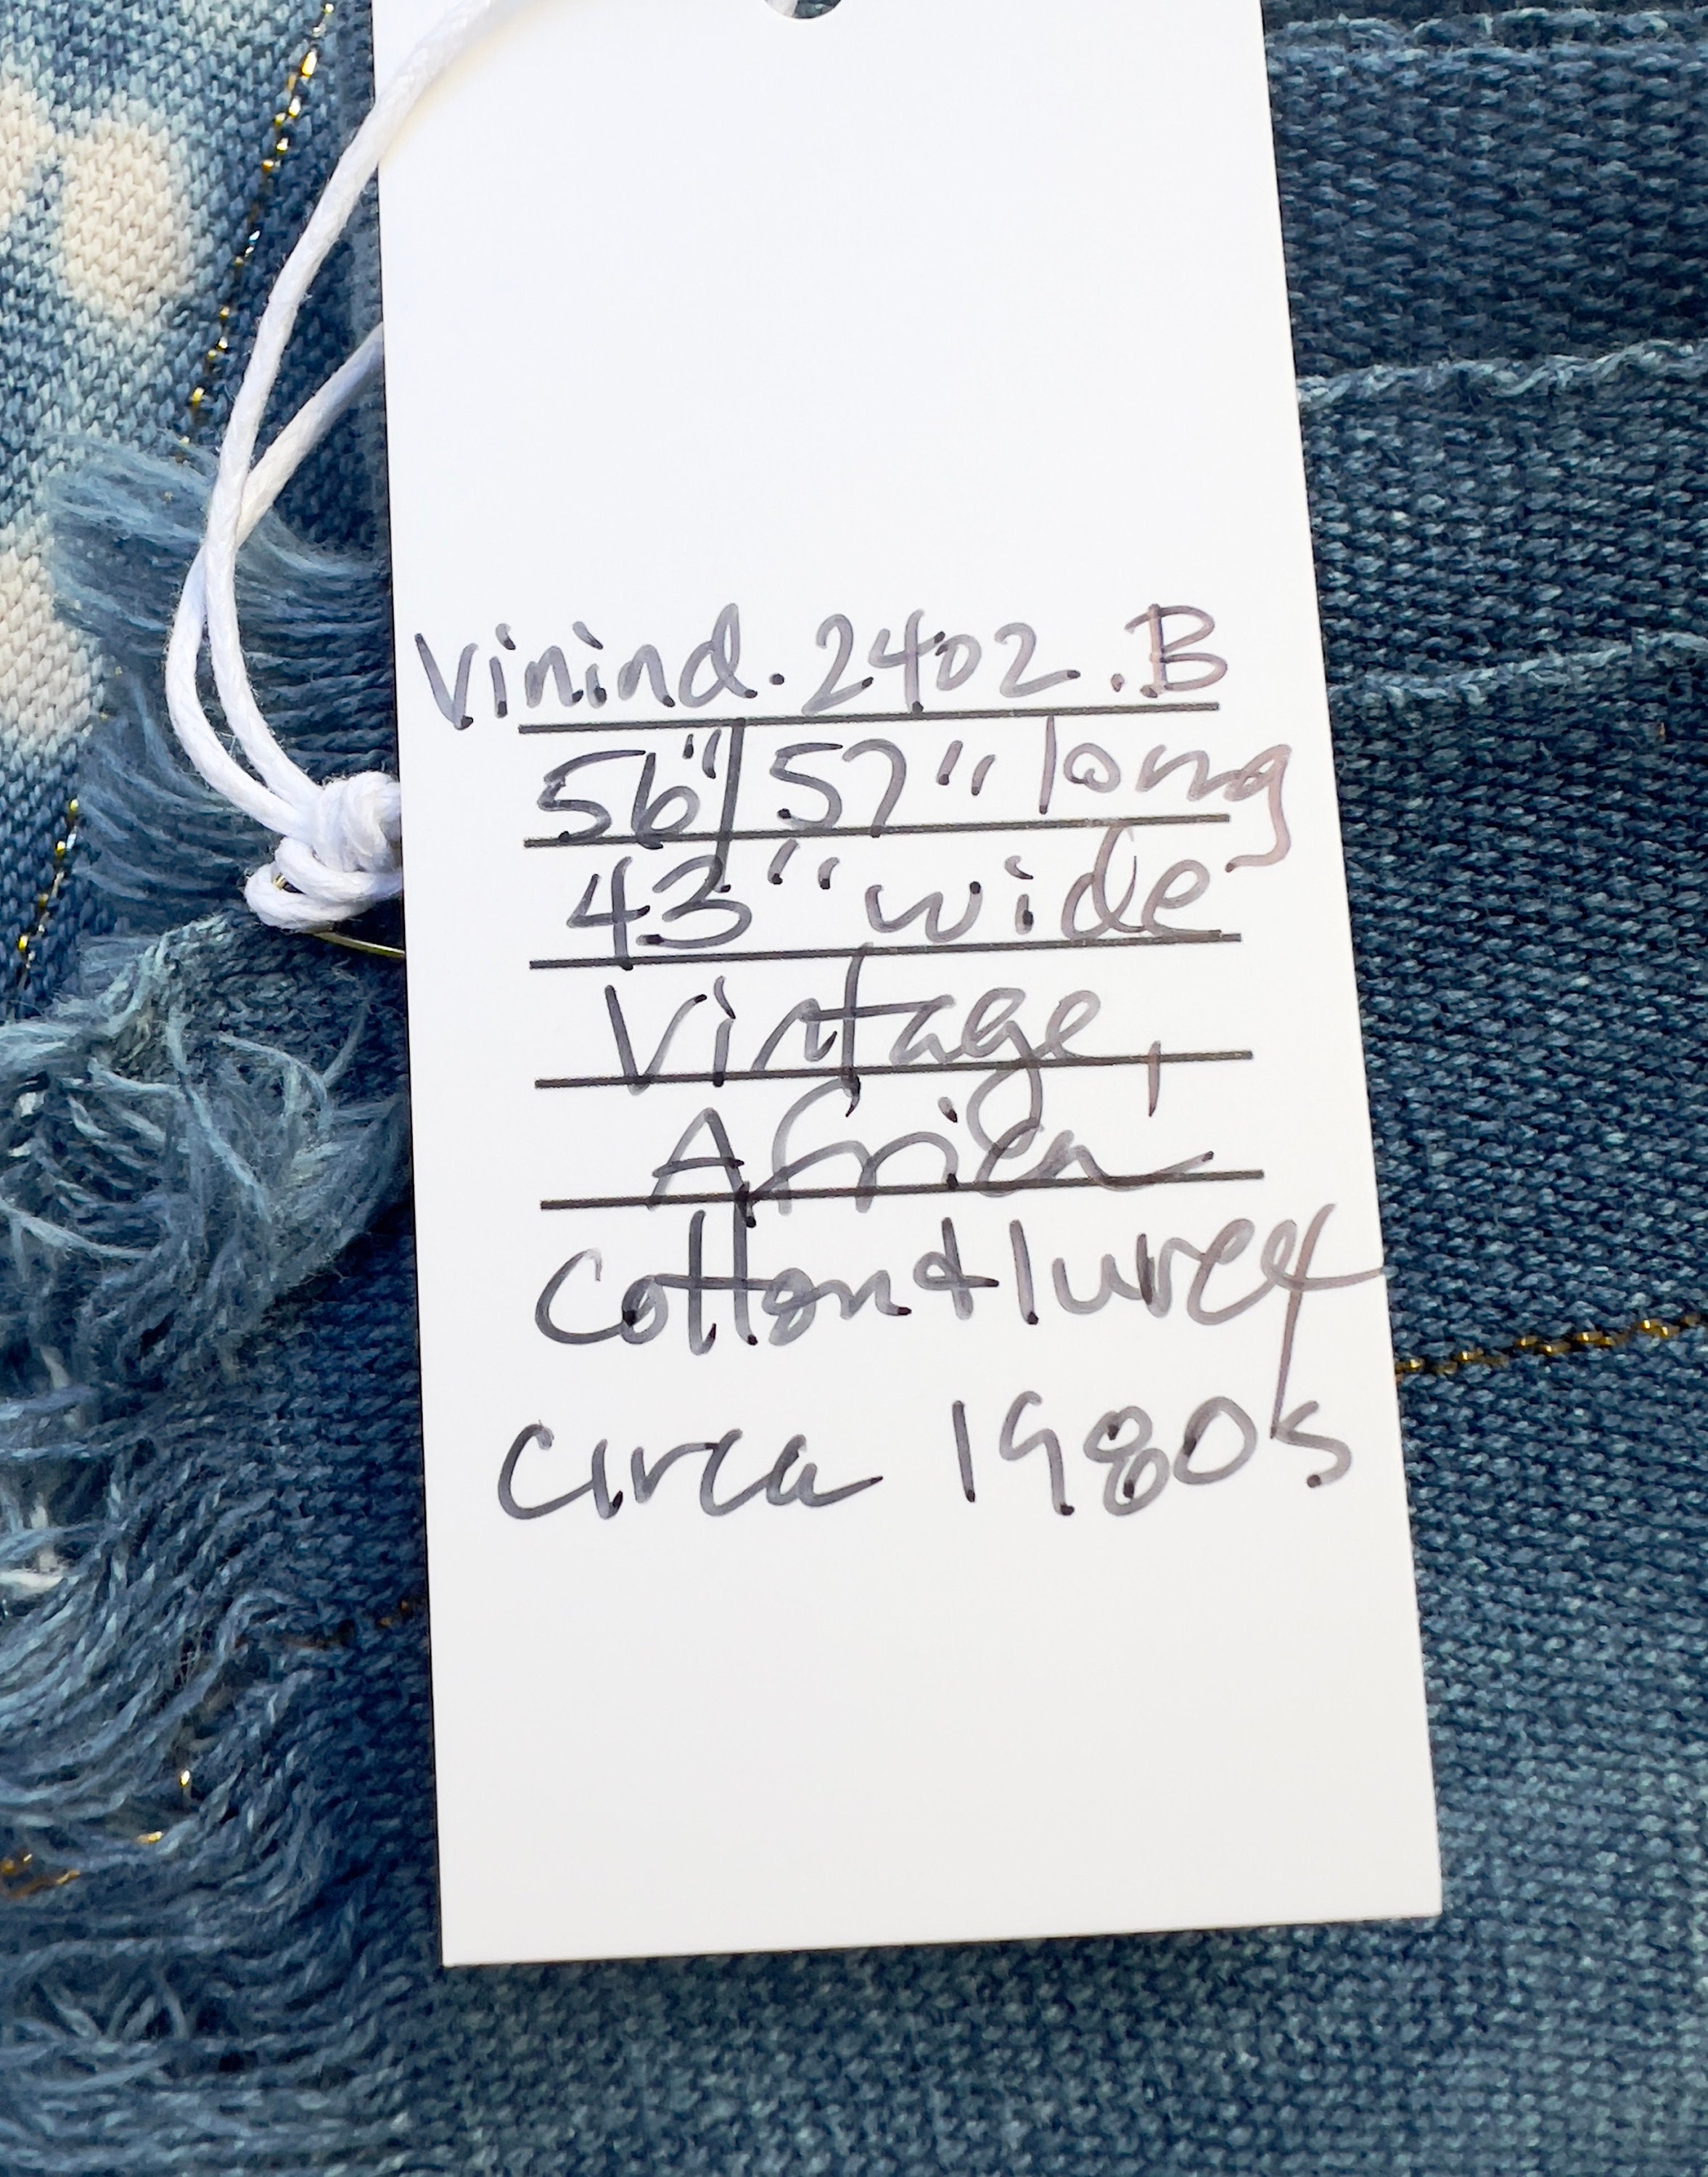 Vinind.2402.B
56"/57" long
43" wide
Vintage,
Africa
Cotton & lurex
Circa 1980s